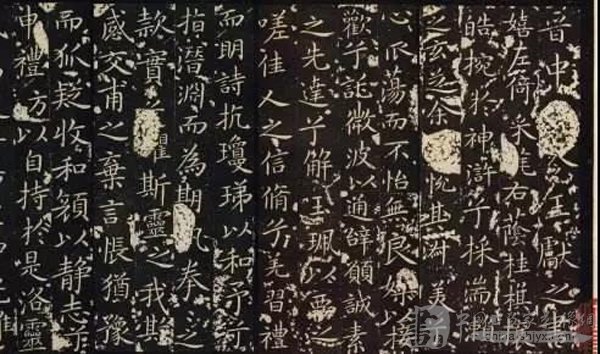 晉中令王獻之書
嬉左倚采旄右蔭桂旗
皓捥於神滸兮採湍瀨
之玄芝余悅其淑美
心振蕩而不怡無良媒以接
歡兮託微波以通辭願誠素
之先達兮解玉珮以要
嗟佳人之信脩兮羌習禮
而明詩抗瓊珶以和予兮
指潛淵而為期執拳之
款實兮懼斯靈之我欺
感交甫之棄言悵猶豫
而狐疑收和顏以靜志兮
申禮防以自持於是洛靈